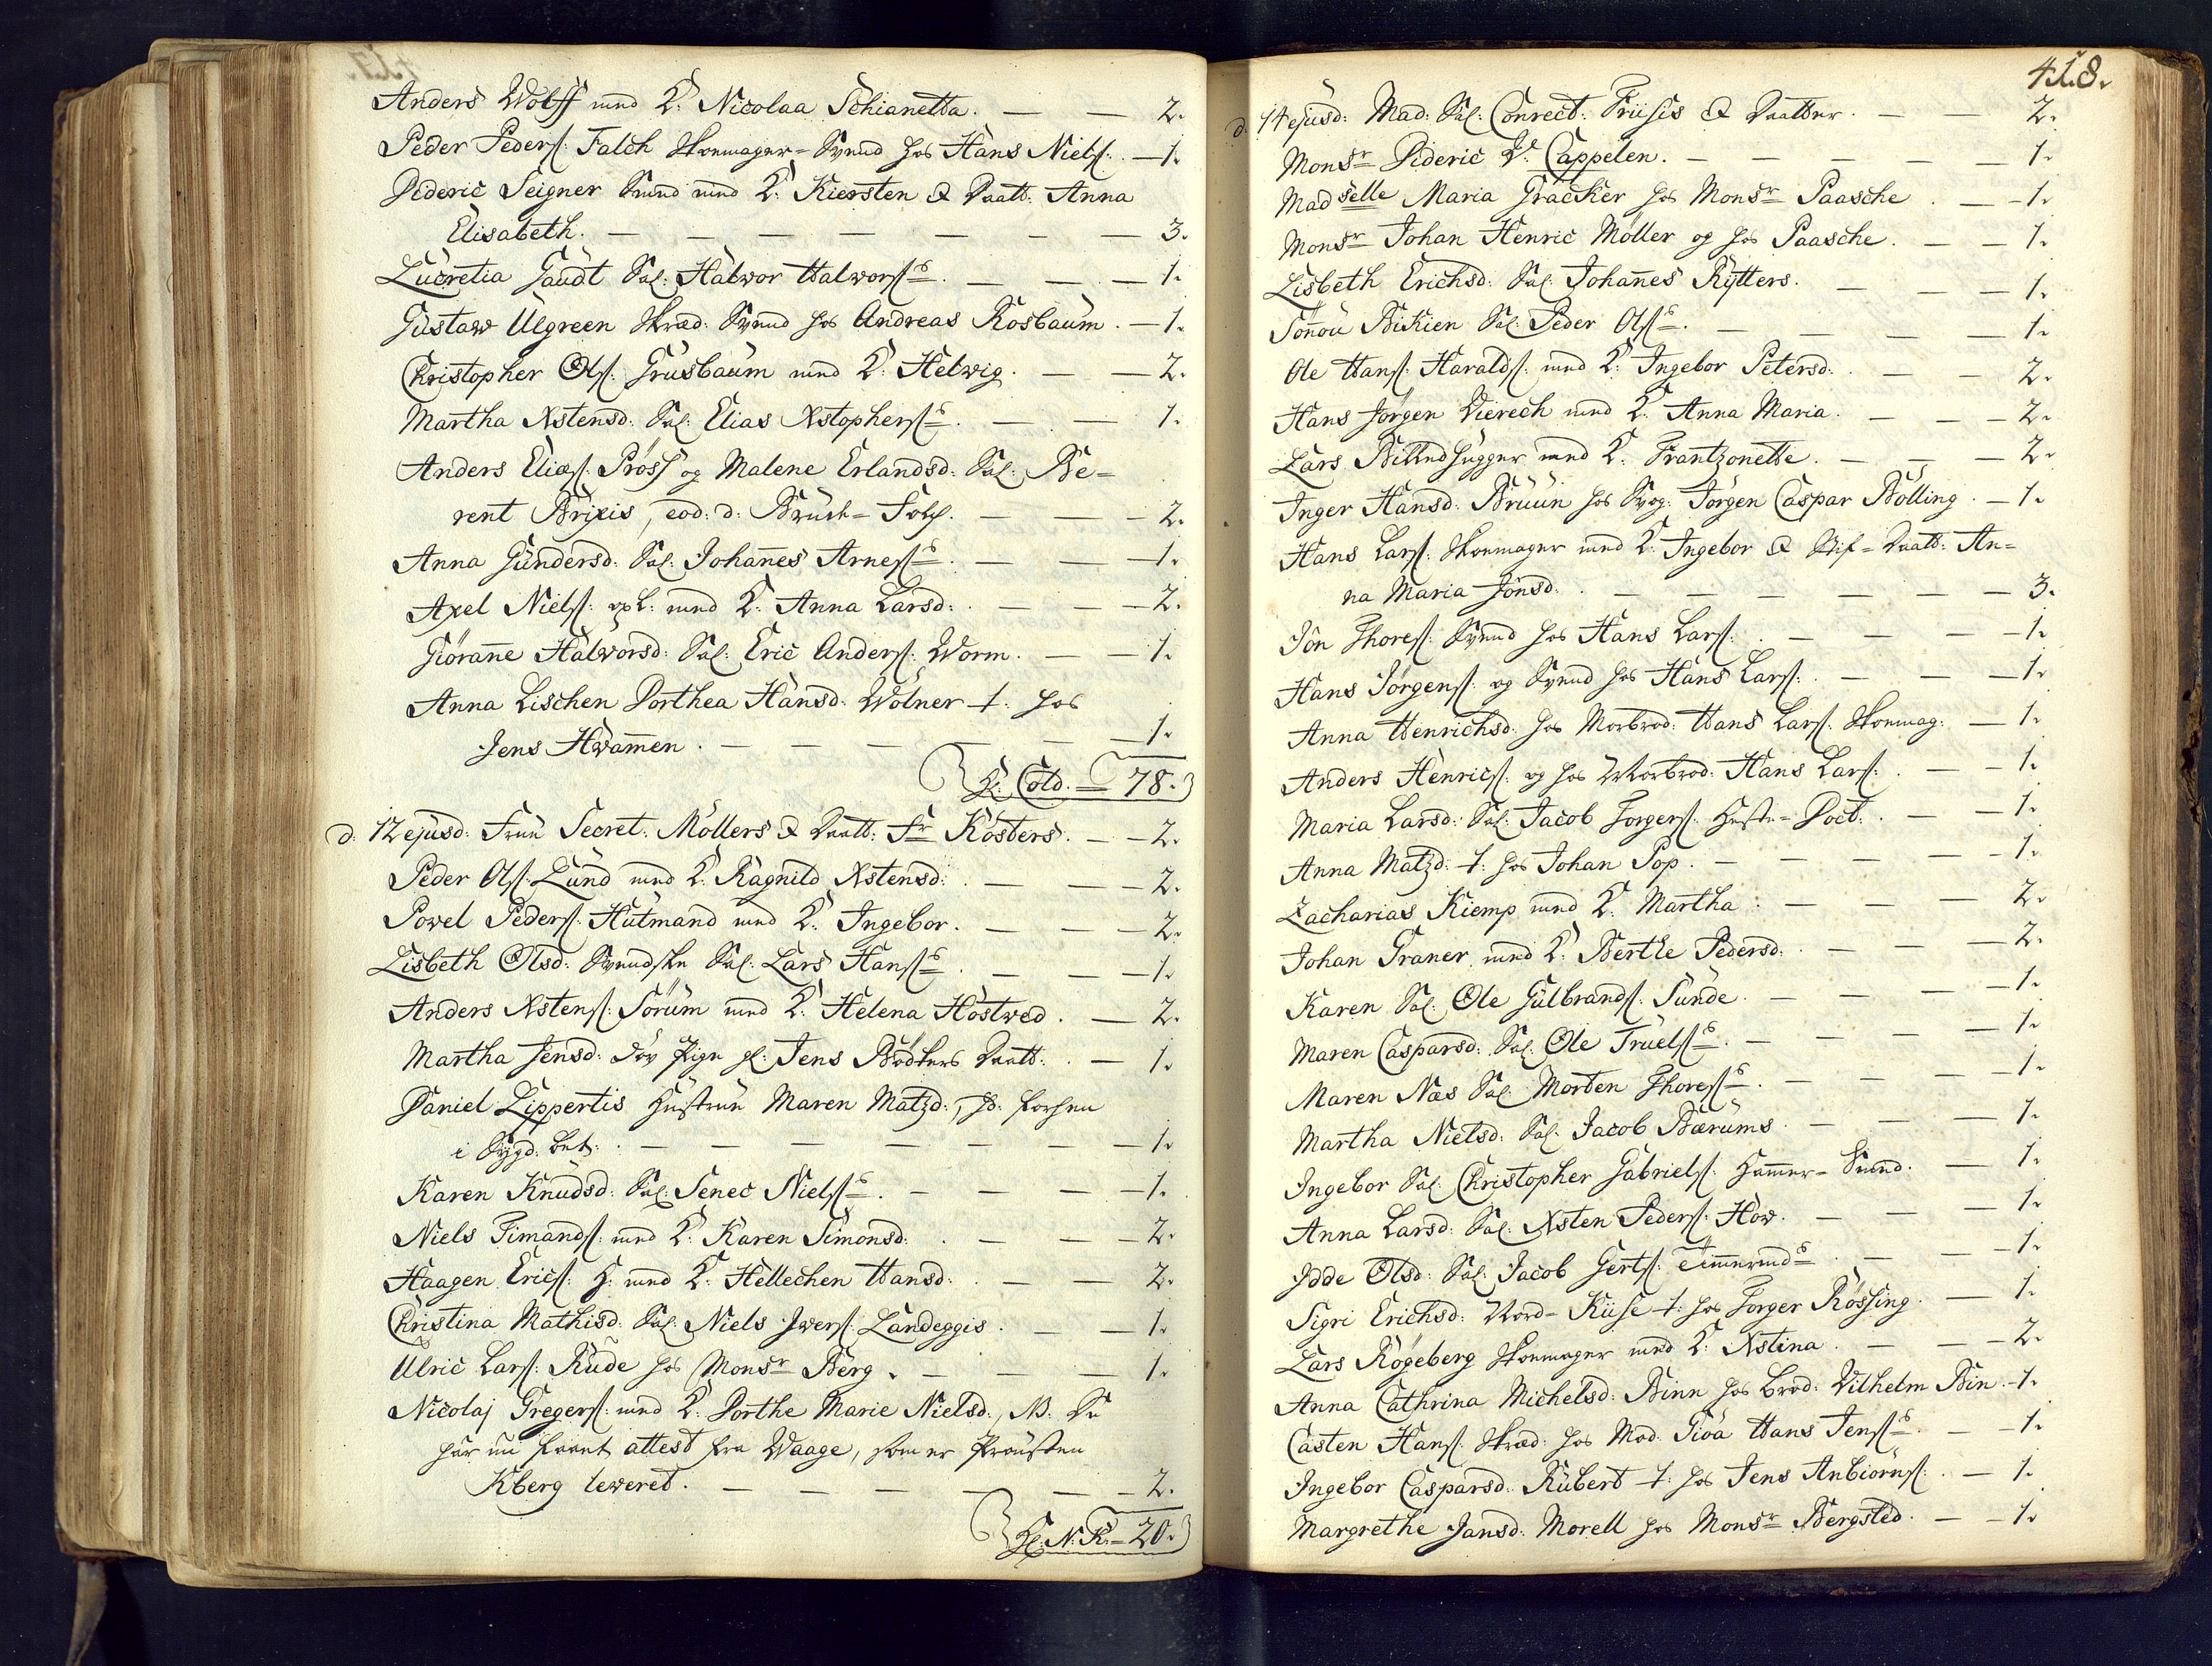 Anders Wolff med K: Nicolaa Schianetta. — — 2.
Peder Peders: Falch Skoemager-Svend hos Hans Niels: — 1.
Dideric Seigner Smed med K: Kiersten & Daatt: Anna
Elisabeth. — — — — — — — 3.
Lucretia Gaudt Sal: Halvor Halvorss. — — — 1.
Gustav Ulgreen Skræd: Svend hos Andreas Rosbaum. — 1.
Christopher Ols: Grusbaum med K: Helwig. — — 2.
Martha Xstensd: Sal: Elias Xstophers. — — 1.
Anders Elias: Pröss og Malene Erlandsd: Sal: Be=
rent Brixis, eod: d: Brude-Folch. — — — 2.
Anna Gundersd: Sal: Johanes Arness. — — 1.
Axel Niels: med K: Anna Larsd: — — — 2.
Giörane Halvorsd: Sal: Eric Anders: Worm. — — 1.
Anna Lischen Dorthea Hansd: Wölner †. hos
Jens Hwamen. — — — — — — 1.
Cold. = 78.
d. 12 ejusd: Frue Secret: Möllers & Daatt: Fr Kösters. — — 2.
Peder Ols: Lund med K: Ragnild Xstensd: — — 2.
Povel Peders: Hutmand med K: Ingebor. — — — 2.
Lisbeth Olsd: Svendske Sal: Lars Hanss. — — — 1.
Anders Xstens: Sörum med K: Helena Höstved. — 2.
Martha Jensd: döv Pige gl: Jens Bödkers Daatt: — 1.
Daniel Lippertis Hustrue Maren Matzd:,
i Sygd: bet: — — — — — — — 1.
Karen Knudsd: Sal: Senec Nielss. — — — 1.
Niels Timands: med K: Karen Simonsd: — — — 2.
Haagen Erics: H: med K: Hellechen Hansd: — — 2.
Christina Mathisd: Sal: Niels Iwers: Landeggis. — — 1.
Ulric Lars: Rude hos Monsr Berg. — — — 1.
Nicolaj Gregers: med K: Dorthe Marie Nielsd:, NB. De
har nu faaet attest fra Waage, som er Prousten
Kberg leweret. — — — — — — 2.
N: K: = 20.
418.
d. 14 ejusd: Mad: Sal: Conrect: Friisis & Daatter. — — 2.
Monsr Dideric Cappelen. — — — — — 1.
Madselle Maria Gräcker hos Monsr Paasche. — — 1.
Monsr Johan Henric Möller og hos Paasche. — — 1.
Lisbeth Erichsd: Sal: Johanes Rytters. — — — 1.
Sönou Bikien Sal: Peder Olss. — — — — 1.
Ole Hans: Haralds: med K: Ingebor Petersd: — — 2.
Hans Jörgen Vierech med K: Anna Maria. — — — 2.
Lars Billedhugger med K: Frantzonette. — — — 2.
Inger Hansd: Bruun hos Svog: Jörgen Caspar Bölling. — 1.
Hans Lars: Skoemager med K: Ingebor & Stif-Daatt: An=
na Maria Jönsd: — — — — — — — 3.
Jön Thores: Svend hos Hans Lars: — — — — 1.
Hans Jörgens: og Svend hos Hans Lars: — — — 1.
Anna Henrichsd: hos Morbrod: Hans Lars: Skoemag: — 1.
Anders Henrics: og hos Morbrod: Hans Lars: — — 1.
Maria Larsd: Sal: Jacob Torgers: Heste-Doct: — — 1.
Anna Matzd: †. hos Johan Pop. — — — — — 1.
Zacharias Kiemp med K: Martha. — — — 2.
Johan Traner med K: Berthe Pedersd: — — — 2.
Karen Sal: Ole Gulbrands: Sunde. — — — — 1.
Maren Caspersd: Sal: Ole Truelss. — — — 1.
Maren Næs Sal: Morten Thoress. — — — — 1.
Martha Nielsd: Sal: Jacob Bærums. — — — 1.
Ingebor Sal: Christopher Gabriels: Hamer-Smed. — 1.
Anna Larsd: Sal: Xsten Peders: How. — — — 1.
Idde Olsd: Sal: Jacob Gerts: Timermds. — — — 1.
Sigri Erichsd: Nord-Kiise †. hos Torger Rössing. — 1.
Lars Rögeberg Skoemager med K: Xstina. — — — 2.
Anna Cathrina Michelsd: Binn hos brod: Vilhelm Bin. - 1.
Casten Hans: Skræd: hos Mad: Giöa Hans Jenss. — — 1.
Ingebor Caspersd: Rubert †. hos Jens Anbiörns: — 1.
Margrethe Jansd: Morell hos Monsr Bergsted. — — 1.